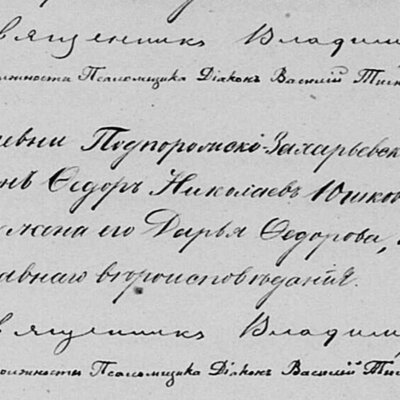 вященникъ Владими
олжности Псаломщика Діаконъ Василій Тих
евни Подпоромско-Захарьевск
нъ Ѳедоръ Николаевъ Юшков
жена его Дарья Ѳедорова,
авнаго вѣроисповѣданія.
вященникъ Владими
олжности Псаломщика Діаконъ Василій Тих